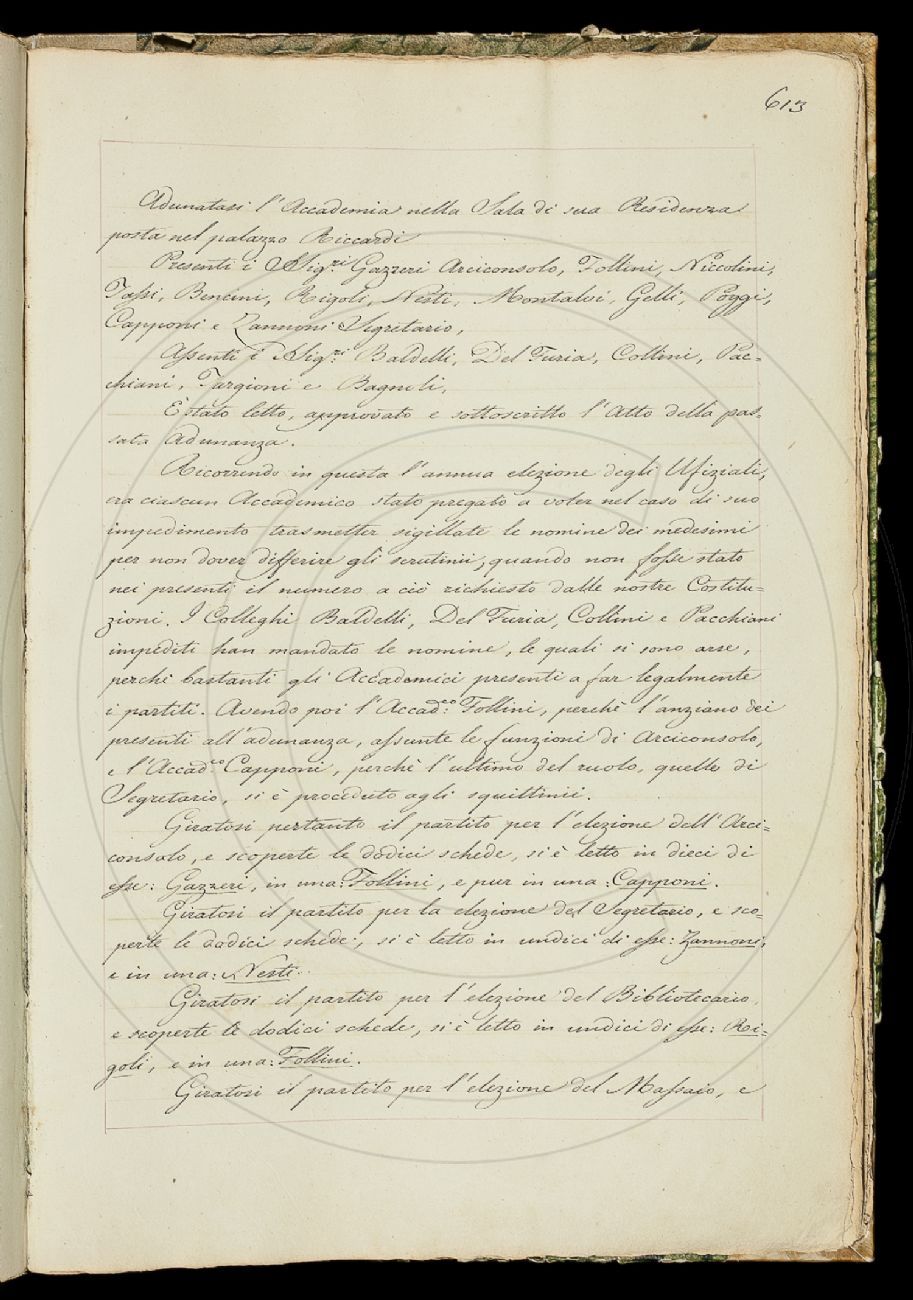 613
Adunatasi l'Accademia nella Sala di sua Residenza
posta nel palazzo Riccardi
Presenti i Sig.ri Gazzeri Arciconsolo, Follini, Niccolini,
Tassi, Bencini, Rigoli, Nesti, Montalvi, Gelli, Poggi,
Capponi e Zannoni Segretario,
Assenti i Sig.ri Baldelli, Del Furia, Collini, Pac=
chiani, Targioni e Bagnoli,
È stato letto, approvato e sottoscritto l'Atto della pas=
sata Adunanza.
Ricorrendo in questa l'annua elezione degli Ufiziali,
era ciascun Accademico stato pregato a voler nel caso di suo
impedimento trasmetter sigillate le nomine dei medesimi
per non dover differire gli scrutinii, quando non fosse stato
nei presenti il numero a ciò richiesto dalle nostre Costitu=
zioni. I Colleghi Baldelli, Del Furia, Collini e Pacchiani
impediti han mandato le nomine, le quali si sono arse,
perchè bastanti gli Accademici presenti a far legalmente
i partiti. Avendo poi l'Accad.co Follini, perchè l'anziano dei
presenti all'adunanza, assunte le funzioni di Arciconsolo,
e l'Accad.co Capponi, perchè l'ultimo del ruolo, quelle di
Segretario, si è proceduto agli squittinii.
Giratosi pertanto il partito per l'elezione dell'Arci=
consolo, e scoperte le dodici schede, si è letto in dieci di
esse: Gazzeri, in una: Follini, e pur in una: Capponi.
Giratosi il partito per la elezione del Segretario, e sco=
perte le dodici schede, si è letto in undici di esse: Zannoni,
e in una: Nesti.
Giratosi il partito per l'elezione del Bibliotecario,
e scoperte le dodici schede, si è letto in undici di esse: Ri=
goli, e in una: Follini.
Giratosi il partito per l'elezione del Massaio, e